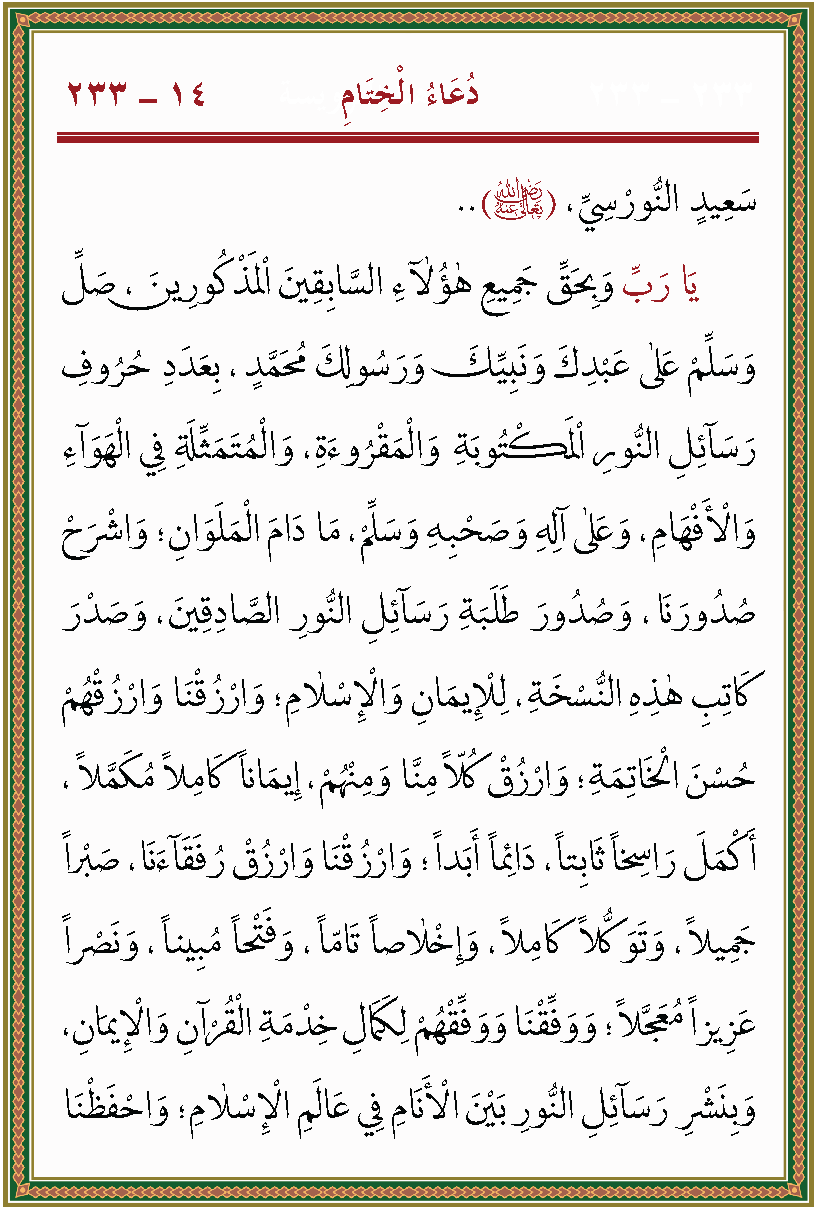 دُعَاءُ الْخِتَامِ ١٤ – ٢٣٣
سَعِيدٍ النُّورْسِيِّ، (رَضِيَ اللهُ تَعَالٰى عَنْهُ)..
يَا رَبِّ وَبِحَقِّ جَمِيعِ هٰؤُلَآءِ السَّابِقِينَ الْمَذْكُورِينَ، صَلِّ
وَسَلِّمْ عَلٰى عَبْدِكَ وَنَبِيِّكَ وَرَسُولِكَ مُحَمَّدٍ، بِعَدَدِ حُرُوفِ
رَسَآئِلِ النُّورِ الْمَكْتُوبَةِ وَالْمَقْرُوءَةِ، وَالْمُتَمَثِّلَةِ فِي الْهَوَآءِ
وَالْأَفْهَامِ، وَعَلٰى آلِهِ وَصَحْبِهِ وَسَلِّمْ، مَا دَامَ الْمَلَوَانِ؛ وَاشْرَحْ
صُدُورَنَا، وَصُدُورَ طَلَبَةِ رَسَآئِلِ النُّورِ الصَّادِقِينَ، وَصَدْرَ
كَاتِبِ هٰذِهِ النُّسْخَةِ، لِلْإِيمَانِ وَالْإِسْلَامِ؛ وَارْزُقْنَا وَارْزُقْهُمْ
حُسْنَ الْخَاتِمَةِ؛ وَارْزُقْ كُلّاً مِنَّا وَمِنْهُمْ، إِيمَاناً كَامِلاً مُكَمَّلاً،
أَكْمَلَ رَاسِخاً ثَابِتاً، دَائِماً أَبَداً؛ وَارْزُقْنَا وَارْزُقْ رُفَقَآءَنَا، صَبْراً
جَمِيلاً، وَتَوَكُّلاً كَامِلاً، وَإِخْلَاصاً تَامّاً، وَفَتْحاً مُبِيناً، وَنَصْراً
عَزِيزاً مُعَجَّلاً؛ وَوَفِّقْنَا وَوَفِّقْهُمْ لِكَمَالِ خِدْمَةِ الْقُرْآنِ وَالْإِيمَانِ،
وَبِنَشْرِ رَسَآئِلِ النُّورِ بَيْنَ الْأَنَامِ فِي عَالَمِ الْإِسْلَامِ؛ وَاحْفَظْنَا